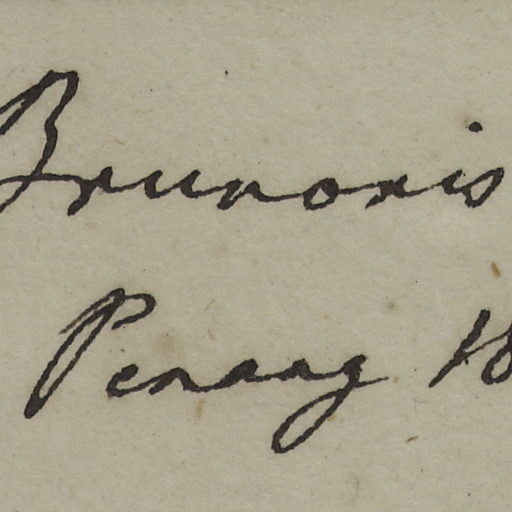 Brunonis
Penang 18